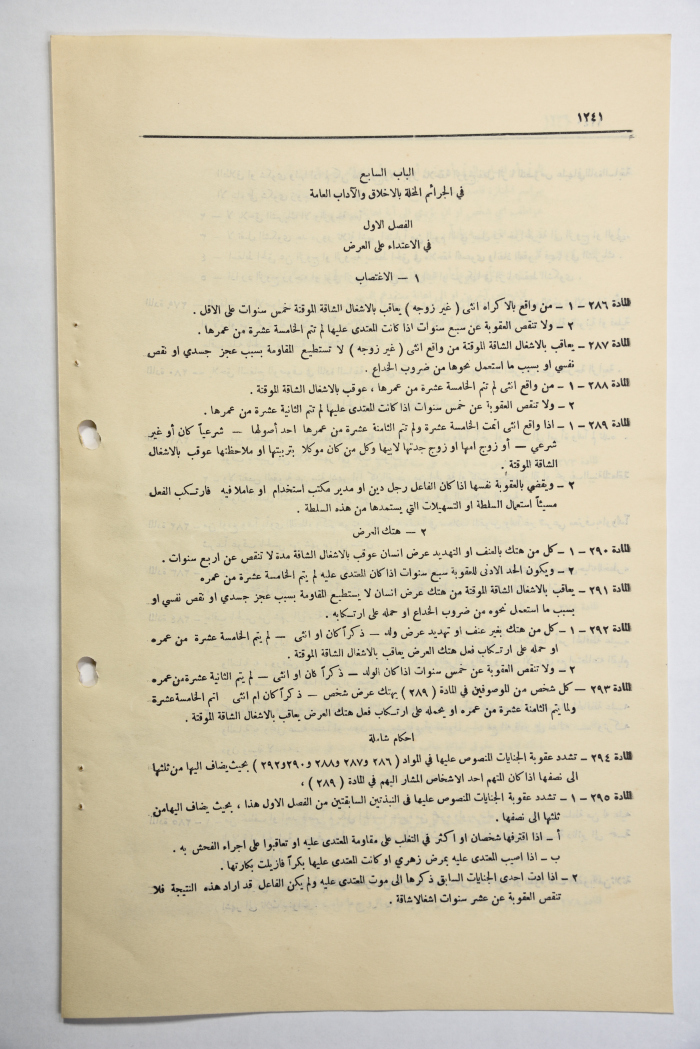 ١٢٤١
الباب السابع
في الجرائم المخلة بالاخلاق والآداب العامة
الفصل الاول
في الاعتداء على العرض
١ – الاغتصاب
المادة ٢٨٦ – ١ – من واقع بالاكراه انثى ( غير زوجه ) يعاقب بالاشغال الشاقة الموقتة خمس سنوات على الاقل .
٢ – ولا تنقص العقوبة عن سبع سنوات اذا كانت المعتدى عليها لم تتم الخامسة عشرة من عمرها .
المادة ٢٨٧ – يعاقب بالاشغال الشاقة الموقتة من واقع انثى ( غير زوجه ) لا تستطيع المقاومة بسبب عجز جسدي او نقص
نفسي او بسبب ما استعمل نحوها من ضروب الخداع .
المادة ٢٨٨ – ١ – من واقع انثى لم تتم الخامسة عشرة من عمرها ، عوقب بالاشغال الشاقة الموقتة .
٢ – ولا تنقص العقوبة عن خمس سنوات اذا كانت المعتدى عليها لم تتم الثانية عشرة من عمرها .
المادة ٢٨٩ – ١ – اذا واقع انثى اتمت الخامسة عشرة ولم تتم الثامنة عشرة من عمرها احد أصولها – شرعياً كان أو غير
شرعي – أو زوج امها او زوج جدتها لابيها وكل من كان موكلا بتربيتها او ملاحظتها عوقب بالاشغال
الشاقة الموقتة .
٢ – ويقضي بالعقوبة نفسها اذا كان الفاعل رجل دين او مدير مكتب استخدام او عاملا فيه فارتسكب الفعل
مسيئاً استعمال السلطة او التسهيلات التي يستمدها من هذه السلطة .
٢ – هتك العرض
المادة ٢٩٠ – ١ – كل من هتك بالعنف او التهديد عرض انسان عوقب بالاشغال الشاقة مدة لا تنقص عن اربع سنوات .
٢ – ويكون الحد الادنى للعقوبة سبع سنوات اذا كان المعتدى عليه لم يتم الخامسة عشرة من عمره
المادة ٢٩١ – يعاقب بالاشغال الشاقة الموقتة من هتك عرض انسان لا يستطيع المقاومة بسبب عجز جسدي او نقص نفسي او
بسبب ما استعمل نحوه من ضروب الخداع او حمله على ارتكابه .
المادة ٢٩٢ – ١ – كل من هتك بغير عنف او تهديد عرض ولد – ذكراً كان او انثى – لم يتم الخامسة عشرة من عمره
او حمله على ارتكاب فعل هتك العرض يعاقب بالاشغال الشاقة الموقتة .
٢ – ولا تنقص العقوبة عن خمس سنوات اذا كان الولد – ذكراً كان او انثى – لم يتم الثانية عشرة من عمره
المادة ٢٩٣ – كل شخص من الموصوفين في المادة ( ٢٨٩ ) يهتك عرض شخص – ذكراً كان ام انثى اتم الخامسة عشرة
ولما يتم الثامنة عشرة من عمره او يحمله على ارتكاب فعل هتك العرض يعاقب بالاشغال الشاقة الموقتة .
احكام شاملة
المادة ٢٩٤ – تشدد عقوبة الجنايات المنصوص عليها في المواد ( ٢٨٦ و٢٨٧ و٢٨٨ و٢٩٠ و٢٩٢ ) بحيث يضاف اليها من ثلثها
الى نصفها اذا كان المتهم احد الاشخاص المشار اليهم في المادة ( ٢٨٩ ) ،
المادة ٢٩٥ – ١ – تشدد عقوبة الجنايات المنصوص عليها في النبذتين السابقتين من الفصل الاول هذا ، بحيث يضاف اليها من
ثلثها الى نصفها .
أ – اذا اقترفها شخصان او اكثر في التغلب على مقاومة المعتدى عليه او تعاقبوا على اجراء الفحش به .
ب – اذا اصيب المعتدى عليه بمرض زهري او كانت المعتدى عليها بكراً فازيلت بكارتها .
٢ – اذا ادت احدى الجنايات السابق ذكرها الى موت المعتدى عليه ولم يكن الفاعل قد اراد هذه النتيجة فلا
تنقص العقوبة عن عشر سنوات اشغالا شاقة .